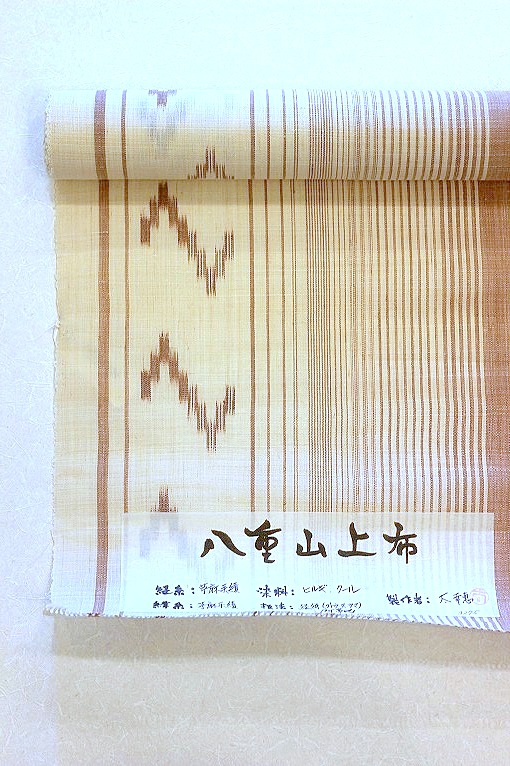 八重山上布
経糸：苧麻手績 染料：ヒルギ、クール
緯糸：苧麻手績 技法：経絣
製作者：